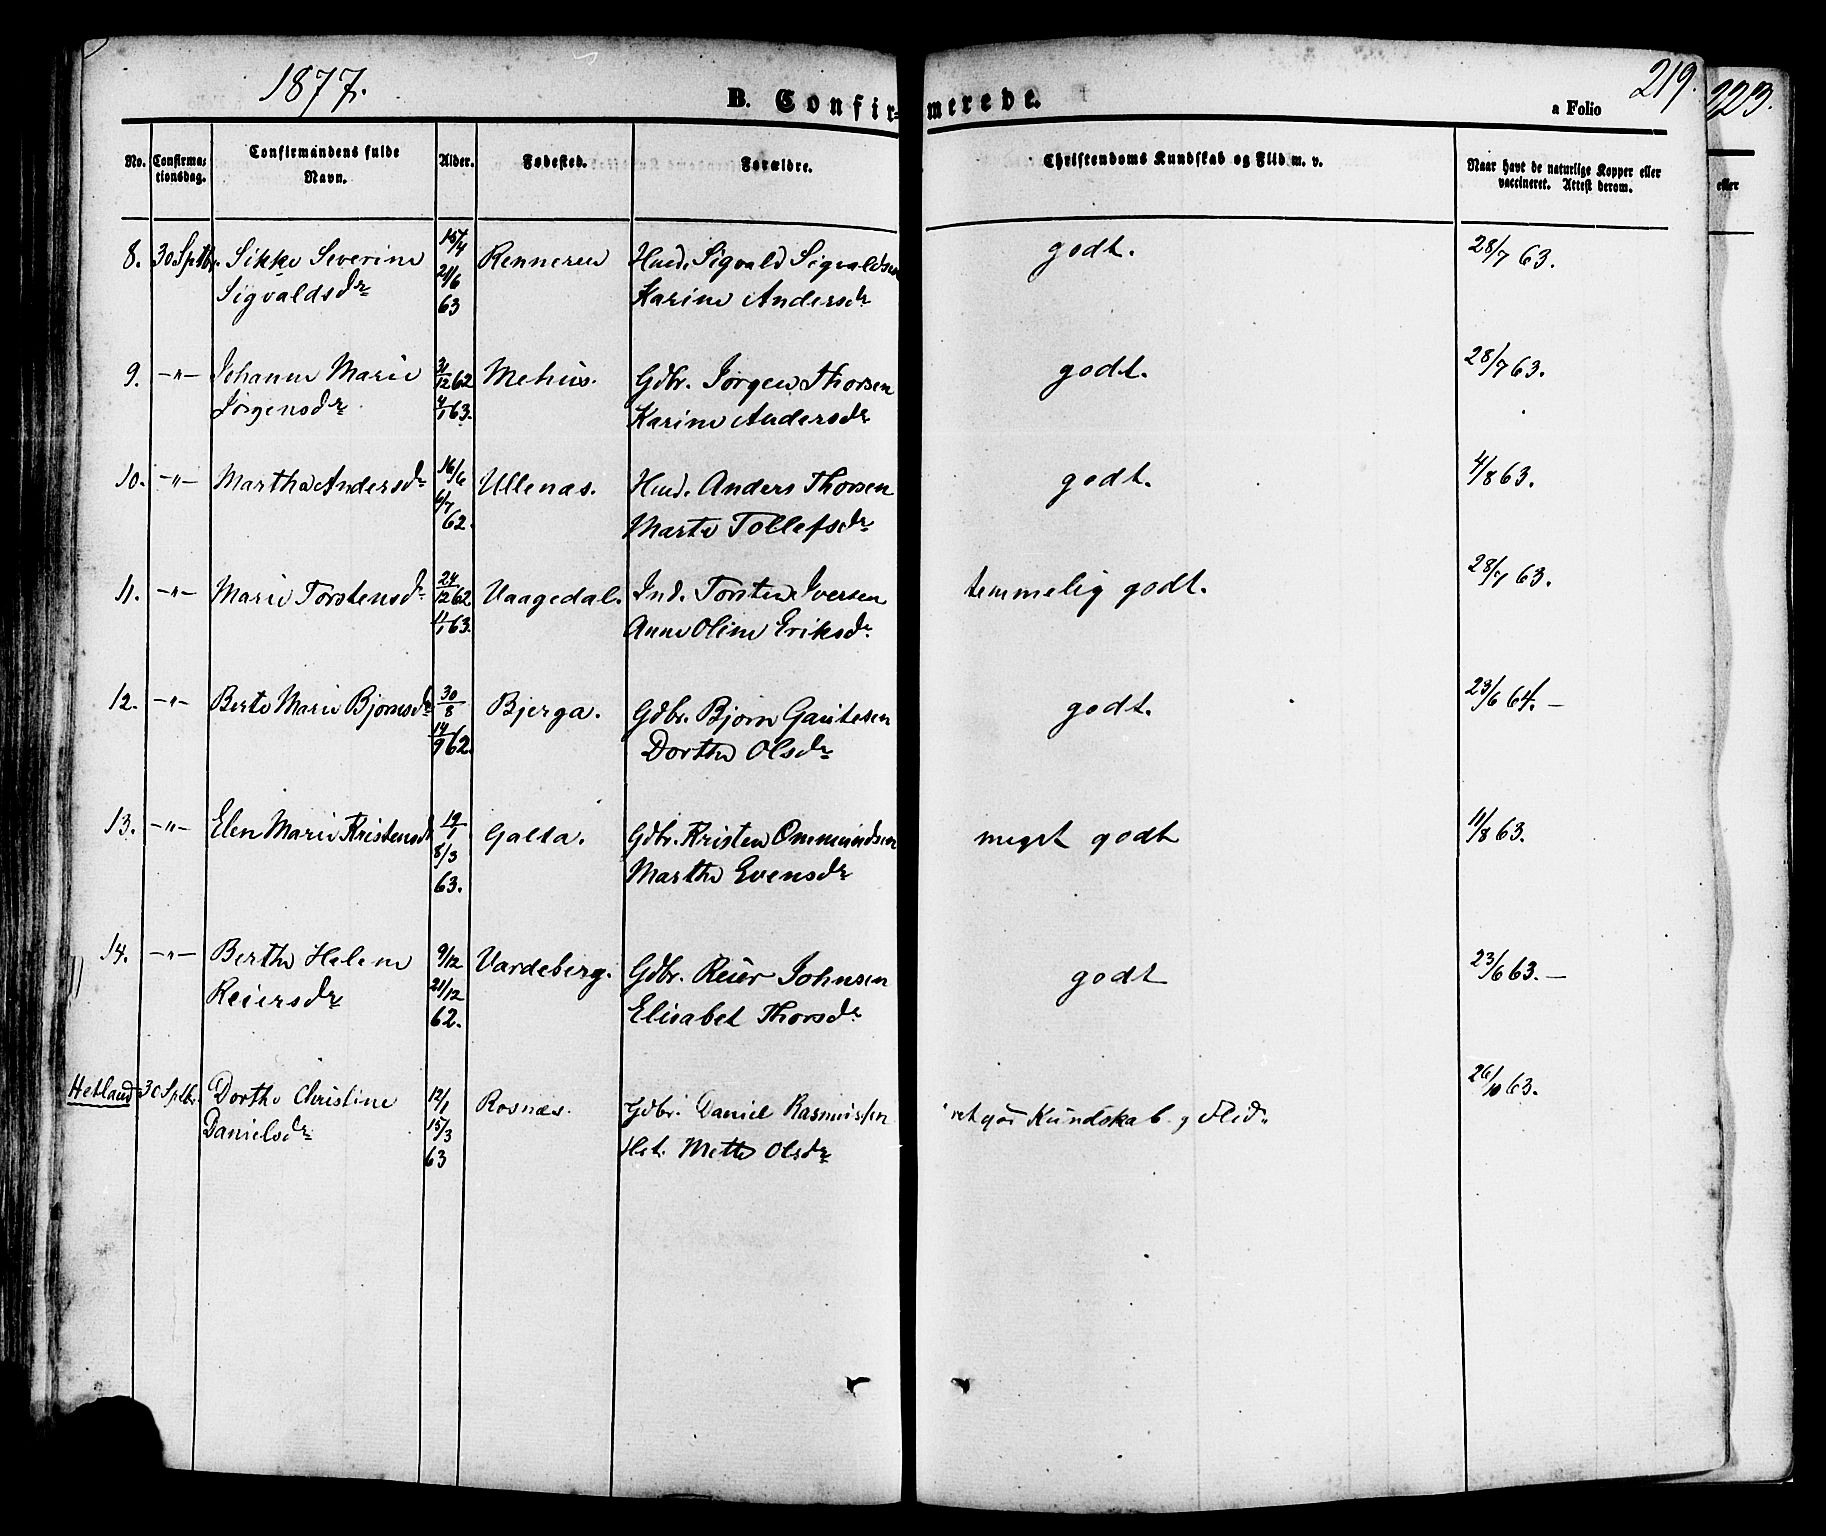 1877.
B. Confir=
merede.
a Folio
219.
223.
No. Confirma=tionsdag. Confirmandens fulde Navn. Alder. Fødested. Forældre. Christendoms Kundskab og Flid m. v. Naar havt de naturlige Kopper eller vaccineret. Attest derom.
eller
8. 30 Sptbr. Sikke Severine 15/4 Renneren Huusm. Sigvald Sigvaldsen godt. 28/7 63.
Sigvaldsdr 21/6 63 Karine Andersdr
9. -"- Johanne Marie 31/12 62 Mehus. Gdbr. Jørgen Thorsen godt. 28/7 63.
Jørgensdr 4/1 63. Karine Andersdr
10. -"- Martha Andersdr 16/6 Ullenæs. Anders Thorsen godt. 4/8 63.
6/7 62. Marte Tollefsdr
11. -"- Marie Torstensdr 24/12 62 Vaagedal. Ind. Torsten Iversen temmelig godt. 28/7 63.
4/1 63. Anne Oline Eriksdr
12. -"- Berte Marie Bjørnsdr 30/8 Bjerga. Gdbr. Bjørn Gautesen godt. 23/6 64.-
14/9 62. Dorthe Olsdr
13. -"- Elen Marie Kristensd 19/1 Galta. Gdbr. Kristen Ommundsen meget godt 11/8 63.
8/3 63. Marthe Evensdr
14. -"- Berthe Helene 9/12 Vardeberg. Gdbr. Reier Johnsen godt 23/6 63.-
Reiersdr 21/12 62. Elisabet Thorsdr
Hetland 30 Sptbr. Dorthe Christine 12/1 Rosnæs. Gdbr. Daniel Rasmussen Kundskab og Flid. 26/10 63.
Danielsdr 15/3 63 Mette Olsdr